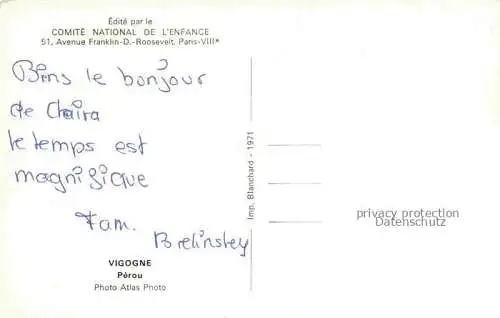 Édité par le
COMITÉ NATIONAL DE L'ENFANCE
51, Avenue Franklin-D.-Roosevelt, Paris-VIIIe
Bins le bonjour
de Chaira
le temps est
magnifique
Fam.
Brelinskey
Imp. Blanchard - 1971
privacy protection
Datenschutz
VIGOGNE
Pérou
Photo Atlas Photo